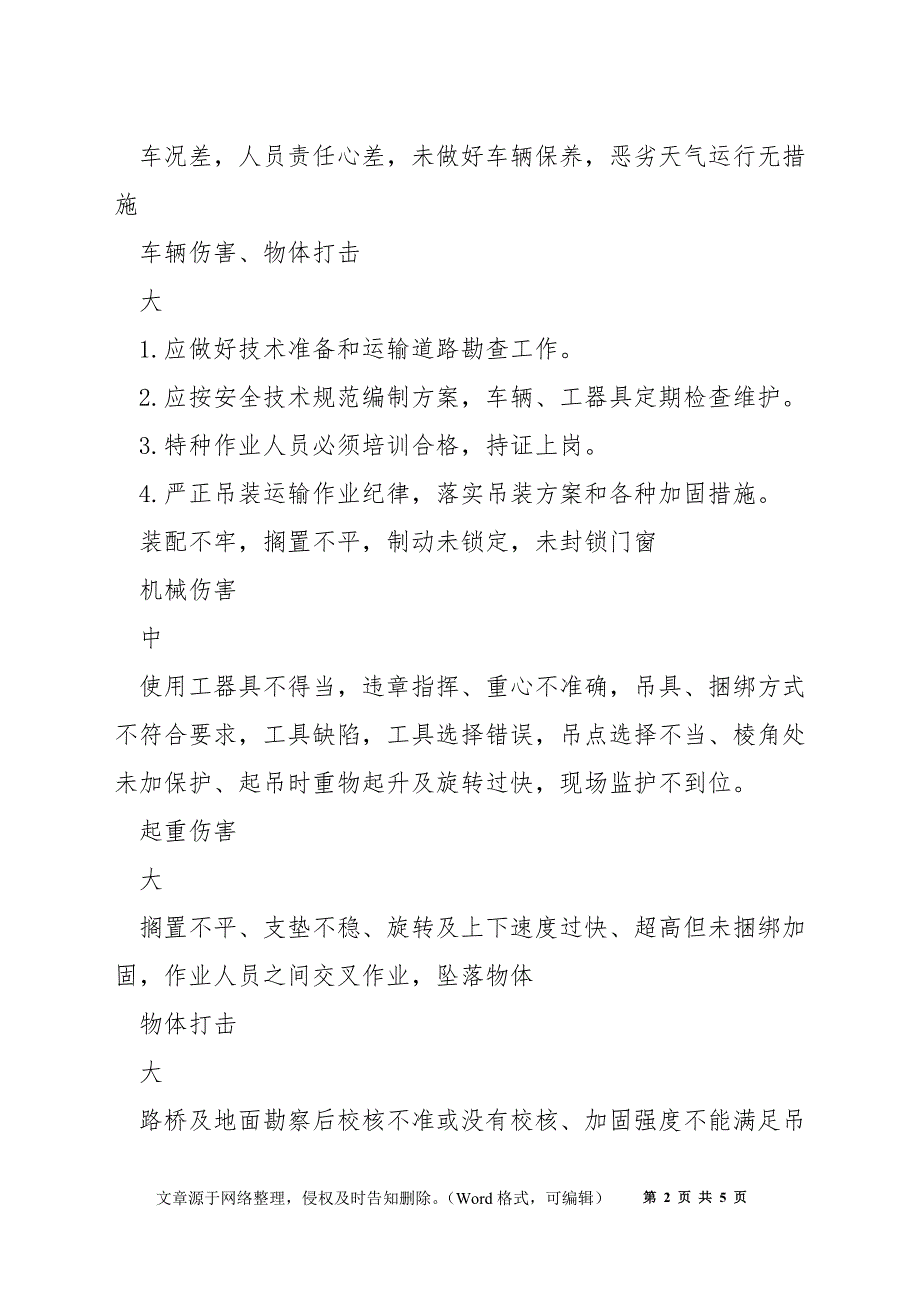 车况差，人员责任心差，未做好车辆保养，恶劣天气运行无措
施
车辆伤害、物体打击
大
1.应做好技术准备和运输道路勘查工作。
2.应按安全技术规范编制方案，车辆、工器具定期检查维护。
3.特种作业人员必须培训合格，持证上岗。
4.严正吊装运输作业纪律，落实吊装方案和各种加固措施。
装配不牢，搁置不平，制动未锁定，未封锁门窗
机械伤害
中
使用工器具不得当，违章指挥、重心不准确，吊具、捆绑方式
不符合要求，工具缺陷，工具选择错误，吊点选择不当、棱角处
未加保护、起吊时重物起升及旋转过快，现场监护不到位。
起重伤害
大
搁置不平、支垫不稳、旋转及上下速度过快、超高但未捆绑加
固，作业人员之间交叉作业，坠落物体
物体打击
大
路桥及地面勘察后校核不准或没有校核、加固强度不能满足吊
文章源于网络整理，侵权及时告知删除。（Word 格式，可编辑） 第 2 页 共 5 页